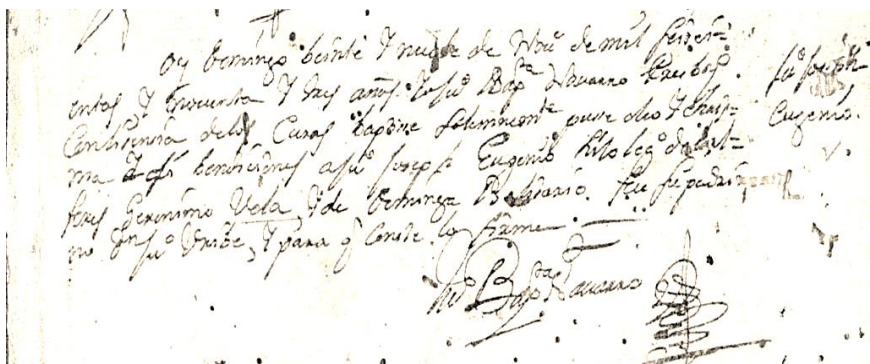 oy Domingo beinte y nuebe de Nou.e de mil seisci=
entos y cinquenta y tres años. Yo Ju.o Bap.ta Nauarro Presb.o
Con lisencia de los Curas baptise solemnem.te puse oleo y chris=
ma y di bendiciones a Ju.o Joseph Eugenio hijo leg.o del Al=
feres Geronimo Vela y de Dominga Belisario. Fu su padri
no Ju.o Uribe, y para q conste lo firme
Ju.o Bap.ta Nauarro
Ju.o Joseph
Eugenio.